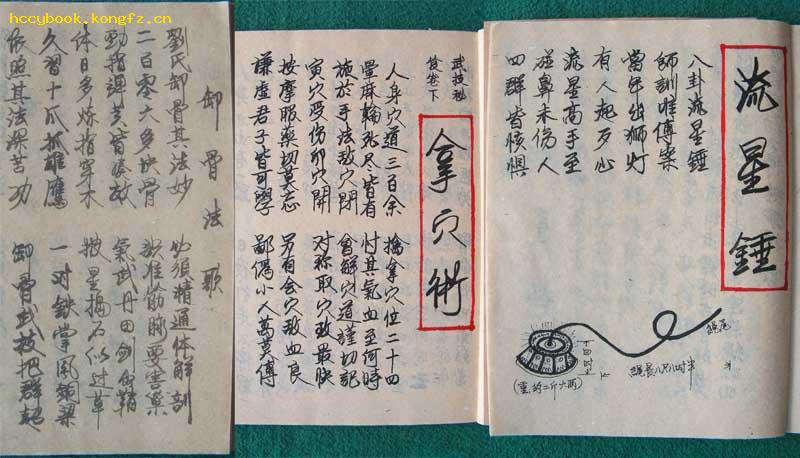 hccybook.kongfz.cn
流星錘
八卦流星錘
師訓唯傳
當年出獅灯
有人起歹心
流星高手至
碰鼻未伤人
四群皆惊惧
繩尾
繩長八尺八吋半
(重約二斤六兩)
武技秘
笈卷下
拿穴術
人身穴道三百余
暈麻輪孔尺皆有
施於手法致穴閉
寅穴受伤卯穴開
按摩服藥切莫忘
謙虛君子皆可學
擒拿穴位二十四
忖其氣血至何時
曾解穴道謹切記
对称取穴效最快
另有合穴致血良
鄙小人萬莫傳
卸骨法歌
劉氏卸骨其法妙
二百零六多块骨
勁指彈黄皆奏效
体日多炼指穿木
久習十爪抓雄鷹
依照其法深苦功
必須精通体解剖
准筋脉要害
氣武丹田剑鞘
披星揭石似过草
一对鉄掌風銅梁
卸骨武技把群超